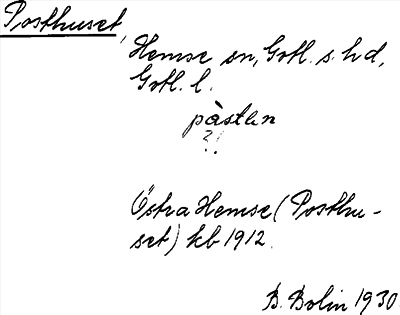 Posthuset,
Hemse sn, Gotl. s. hd,
Gotl. l.
pàstln
?!
Östra Hemse (Posthu-
set) kb 1912.
B. Bolin 1930